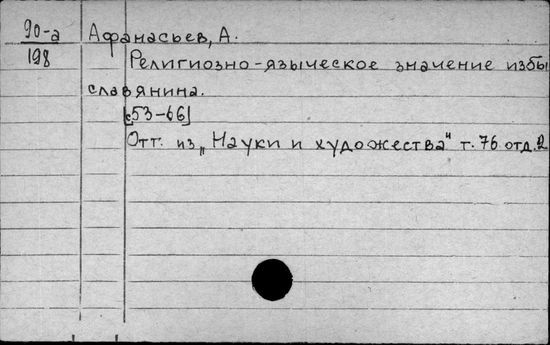 90-а Афанасьев, А.
198 Религиозно-языческое значение избы
славянина.
[с.53-66]
Отт. из „Науки и художества" т. 76 отд. 2